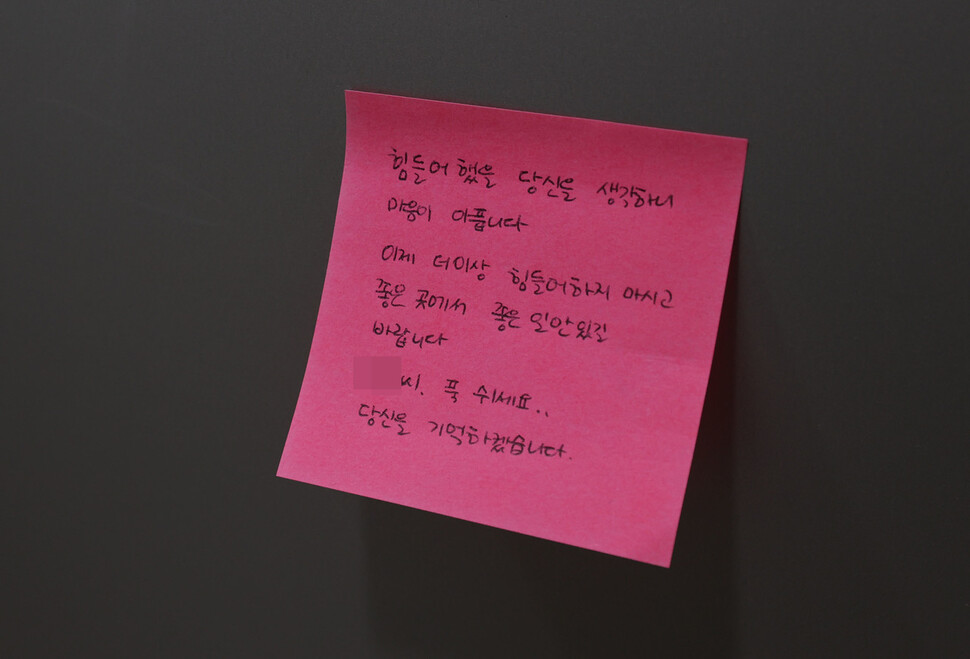 힘들어 했을 당신을 생각하니
마음이 아픕니다
이제 더이상 힘들어하지 마시고
좋은 곳에서 좋은 일만 있길
바랍니다
씨. 푹 쉬세요..
당신을 기억하겠습니다.